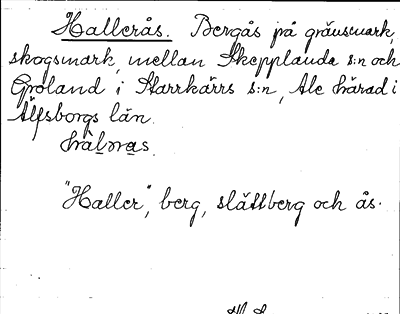 Hallerås. Bergås på gränsmark,
skogsmark, mellan Skepplanda s:n och
Gröland i Starrkärrs s:n, Ale härad i
Älfsborgs län.
"Haller", berg, slättberg och ås.